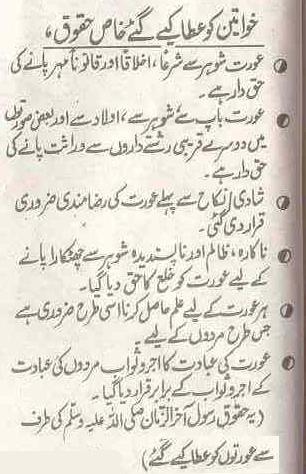 خواتین کو عطا کیے گئے خاص حقوق،
عورت شوہر سے شرعاً، اخلاقاً اور قانوناً مہر پانے کی
حق دار ہے۔
عورت باپ سے شوہر سے، اولاد سے اور بعض صورتوں
میں دوسرے قریبی رشتے داروں سے وراثت پانے کی
حق دار ہے۔
شادی/نکاح سے پہلے عورت کی رضامندی ضروری
قرار دی گئی۔
ناکارہ، ظالم اور ناپسندیدہ شوہر سے چھٹکارا پانے
کے لیے عورت کو خلع کا حق دیا گیا۔
ہر عورت کے لیے علم حاصل کرنا اسی طرح ضروری ہے
جس طرح مردوں کے لیے۔
عورت کی عبادت کا اجر و ثواب مردوں کی عبادت
کے اجر و ثواب کے برابر قرار دیا گیا۔
(یہ حقوق رسول آخر الزماں صلی اللہ علیہ وسلم کی طرف
سے عورتوں کو عطا کیے گئے)